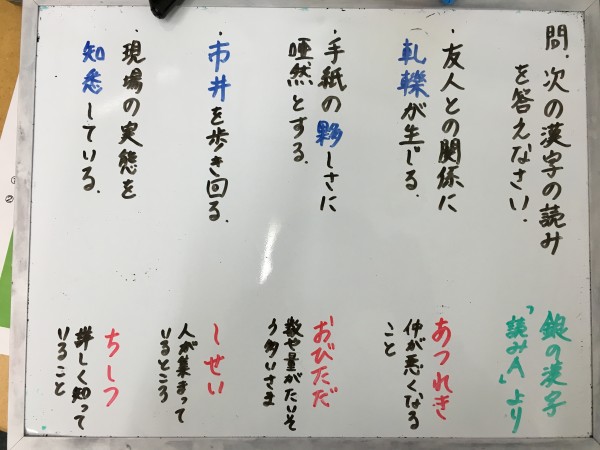 問.次の漢字の読み
を答えなさい.
・友人との関係に
軋轢が生じる.
・手紙の夥しさに
唖然とする.
・市井を歩き回る.
・現場の実態を
知悉している.
銀の漢字
「読みA」より
あつれき
仲が悪くなる
こと
おびただ
数や量がたいそ
う多いさま
しせい
人が集まって
いるところ
ちしつ
詳しく知って
いること